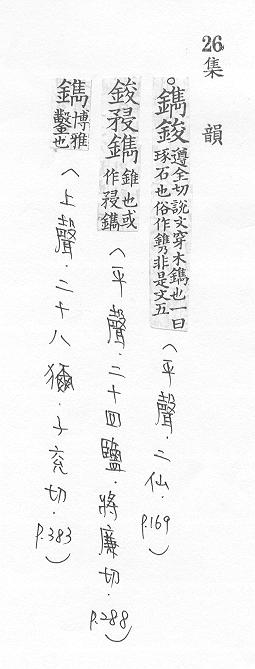 26集韻
○鐫鋑遵全切說文穿木鐫也一曰
琢石也俗作鎸非是文五
(平聲.二仙.P.169)
鋑鐫錐也或
作鐫
(平聲.二十四鹽.將廉切.P.288)
鐫博雅
鑿也
(上聲.二十八獮.子兗切.P.383)